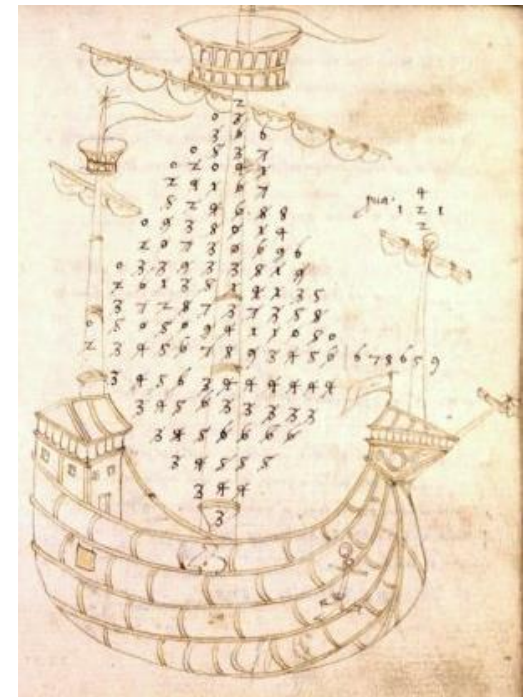 2
0 3
3 6 6
0 8 3 7
0 2 0 9 1
2 9 1 6 7
5 2 4 6 8 8
0 9 3 8 0 1 4
4
1 2 1
2
2 9 7 3 0 6 9 6
0 3 3 9 3 3 8 1 9
2 0 1 3 8 1 9 1 3 5
3 7 2 8 7 3 7 3 5 8
0 5 0 5 0 9 4 1 1 0 8 0
2 3 4 5 6 7 8 9 3 4 5 6 | 6 7 8 6 5 9
3 4 5 6 3 4 4 4 4 4
3 4 5 6 3 3 3 3
3 4 5 6 6 6 6
3 4 5 5 5
3 4 4
3